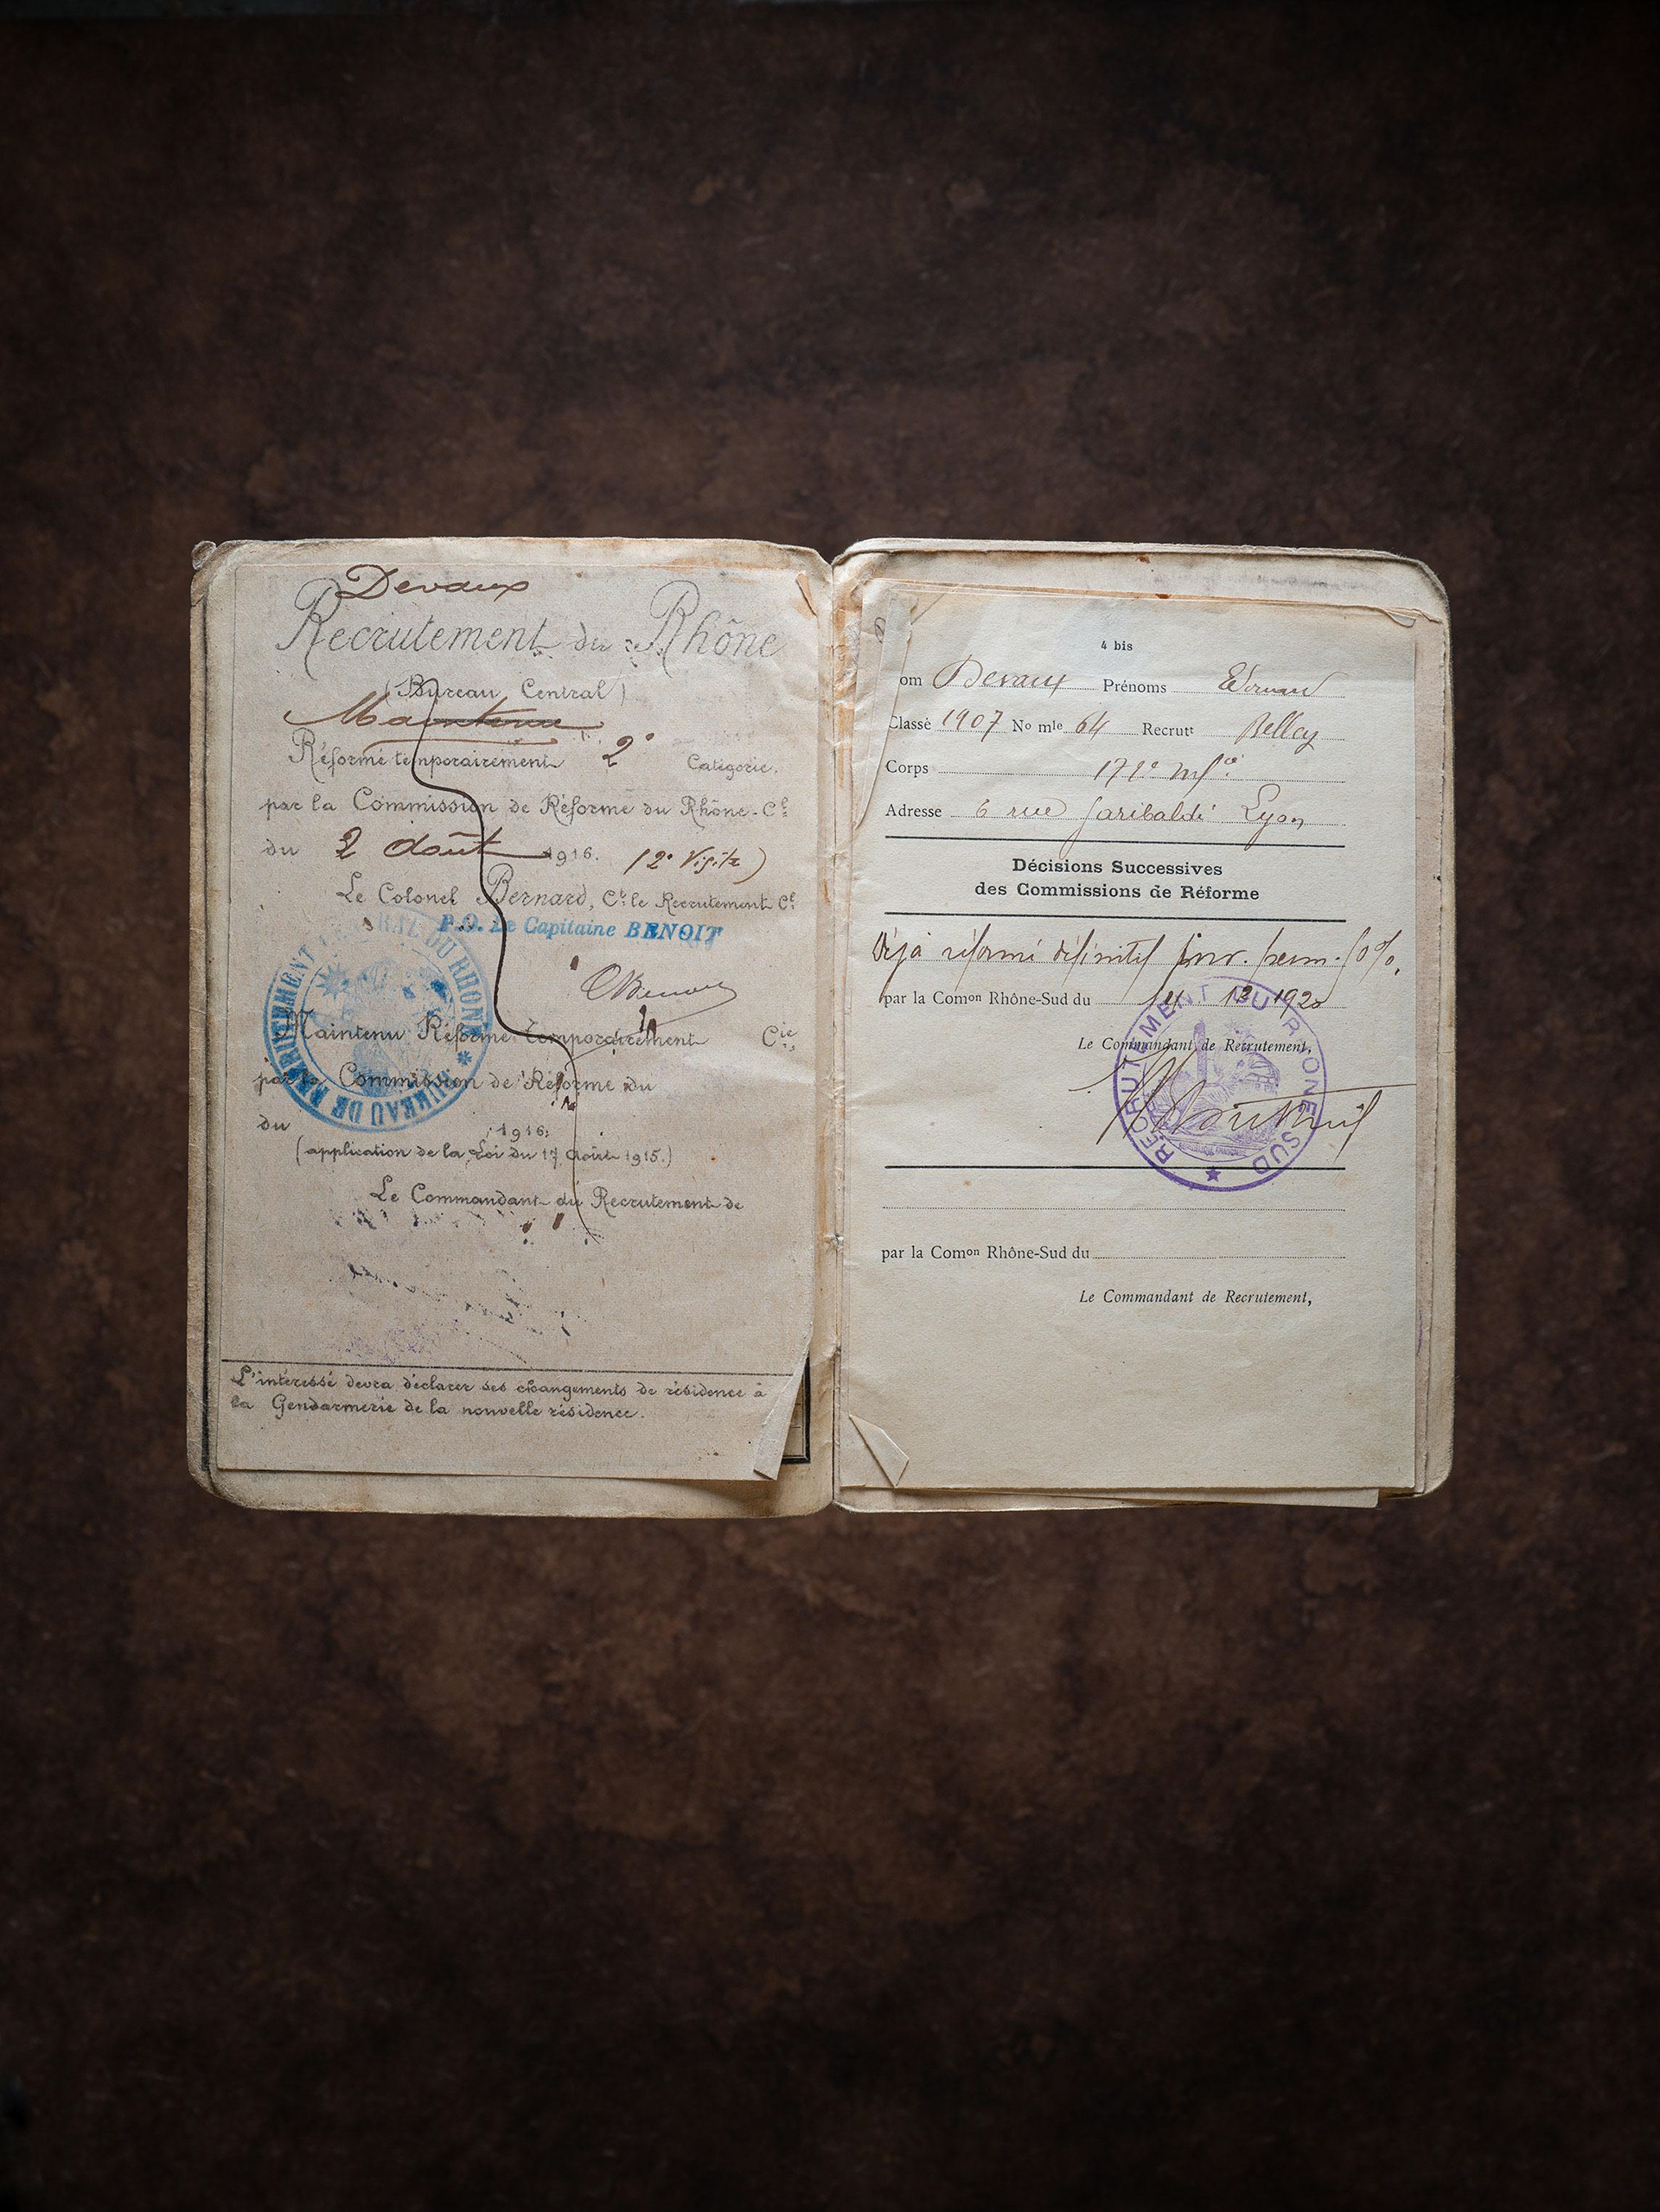 Devaux
Recrutement du Rhône
(Bureau Central)
Maintenu
Réformé temporairement 2e Catégorie.
par la Commission de Réforme du Rhône-Cl
du 2 août 1916. (2e Visite)
Le Colonel Bernard, Ct le Recrutement Cl
P.O. Le Capitaine BENOIT
BUREAU DE RECRUTEMENT CENTRAL DU RHONE
Maintenu Réformé temporairement Cie,
par la Commission de Réforme du
du 1916.
(application de la Loi du 17 Août 1915.)
Le Commandant du Recrutement de
L'intéressé devra déclarer ses changements de résidence à
la Gendarmerie de la nouvelle résidence.
4 bis
om Devaux Prénoms
Classe 1907 No mle 64 Recrutt Belley
Corps 171e Infie
Adresse 6 rue Garibaldi Lyon
Décisions Successives
des Commissions de Réforme
Déjà réformé définitif inv. perm.
par la Comon Rhône-Sud du 1920
Le Commandant de Recrutement,
RECRUTEMENT DU RHONE SUD
par la Comon Rhône-Sud du
Le Commandant de Recrutement,